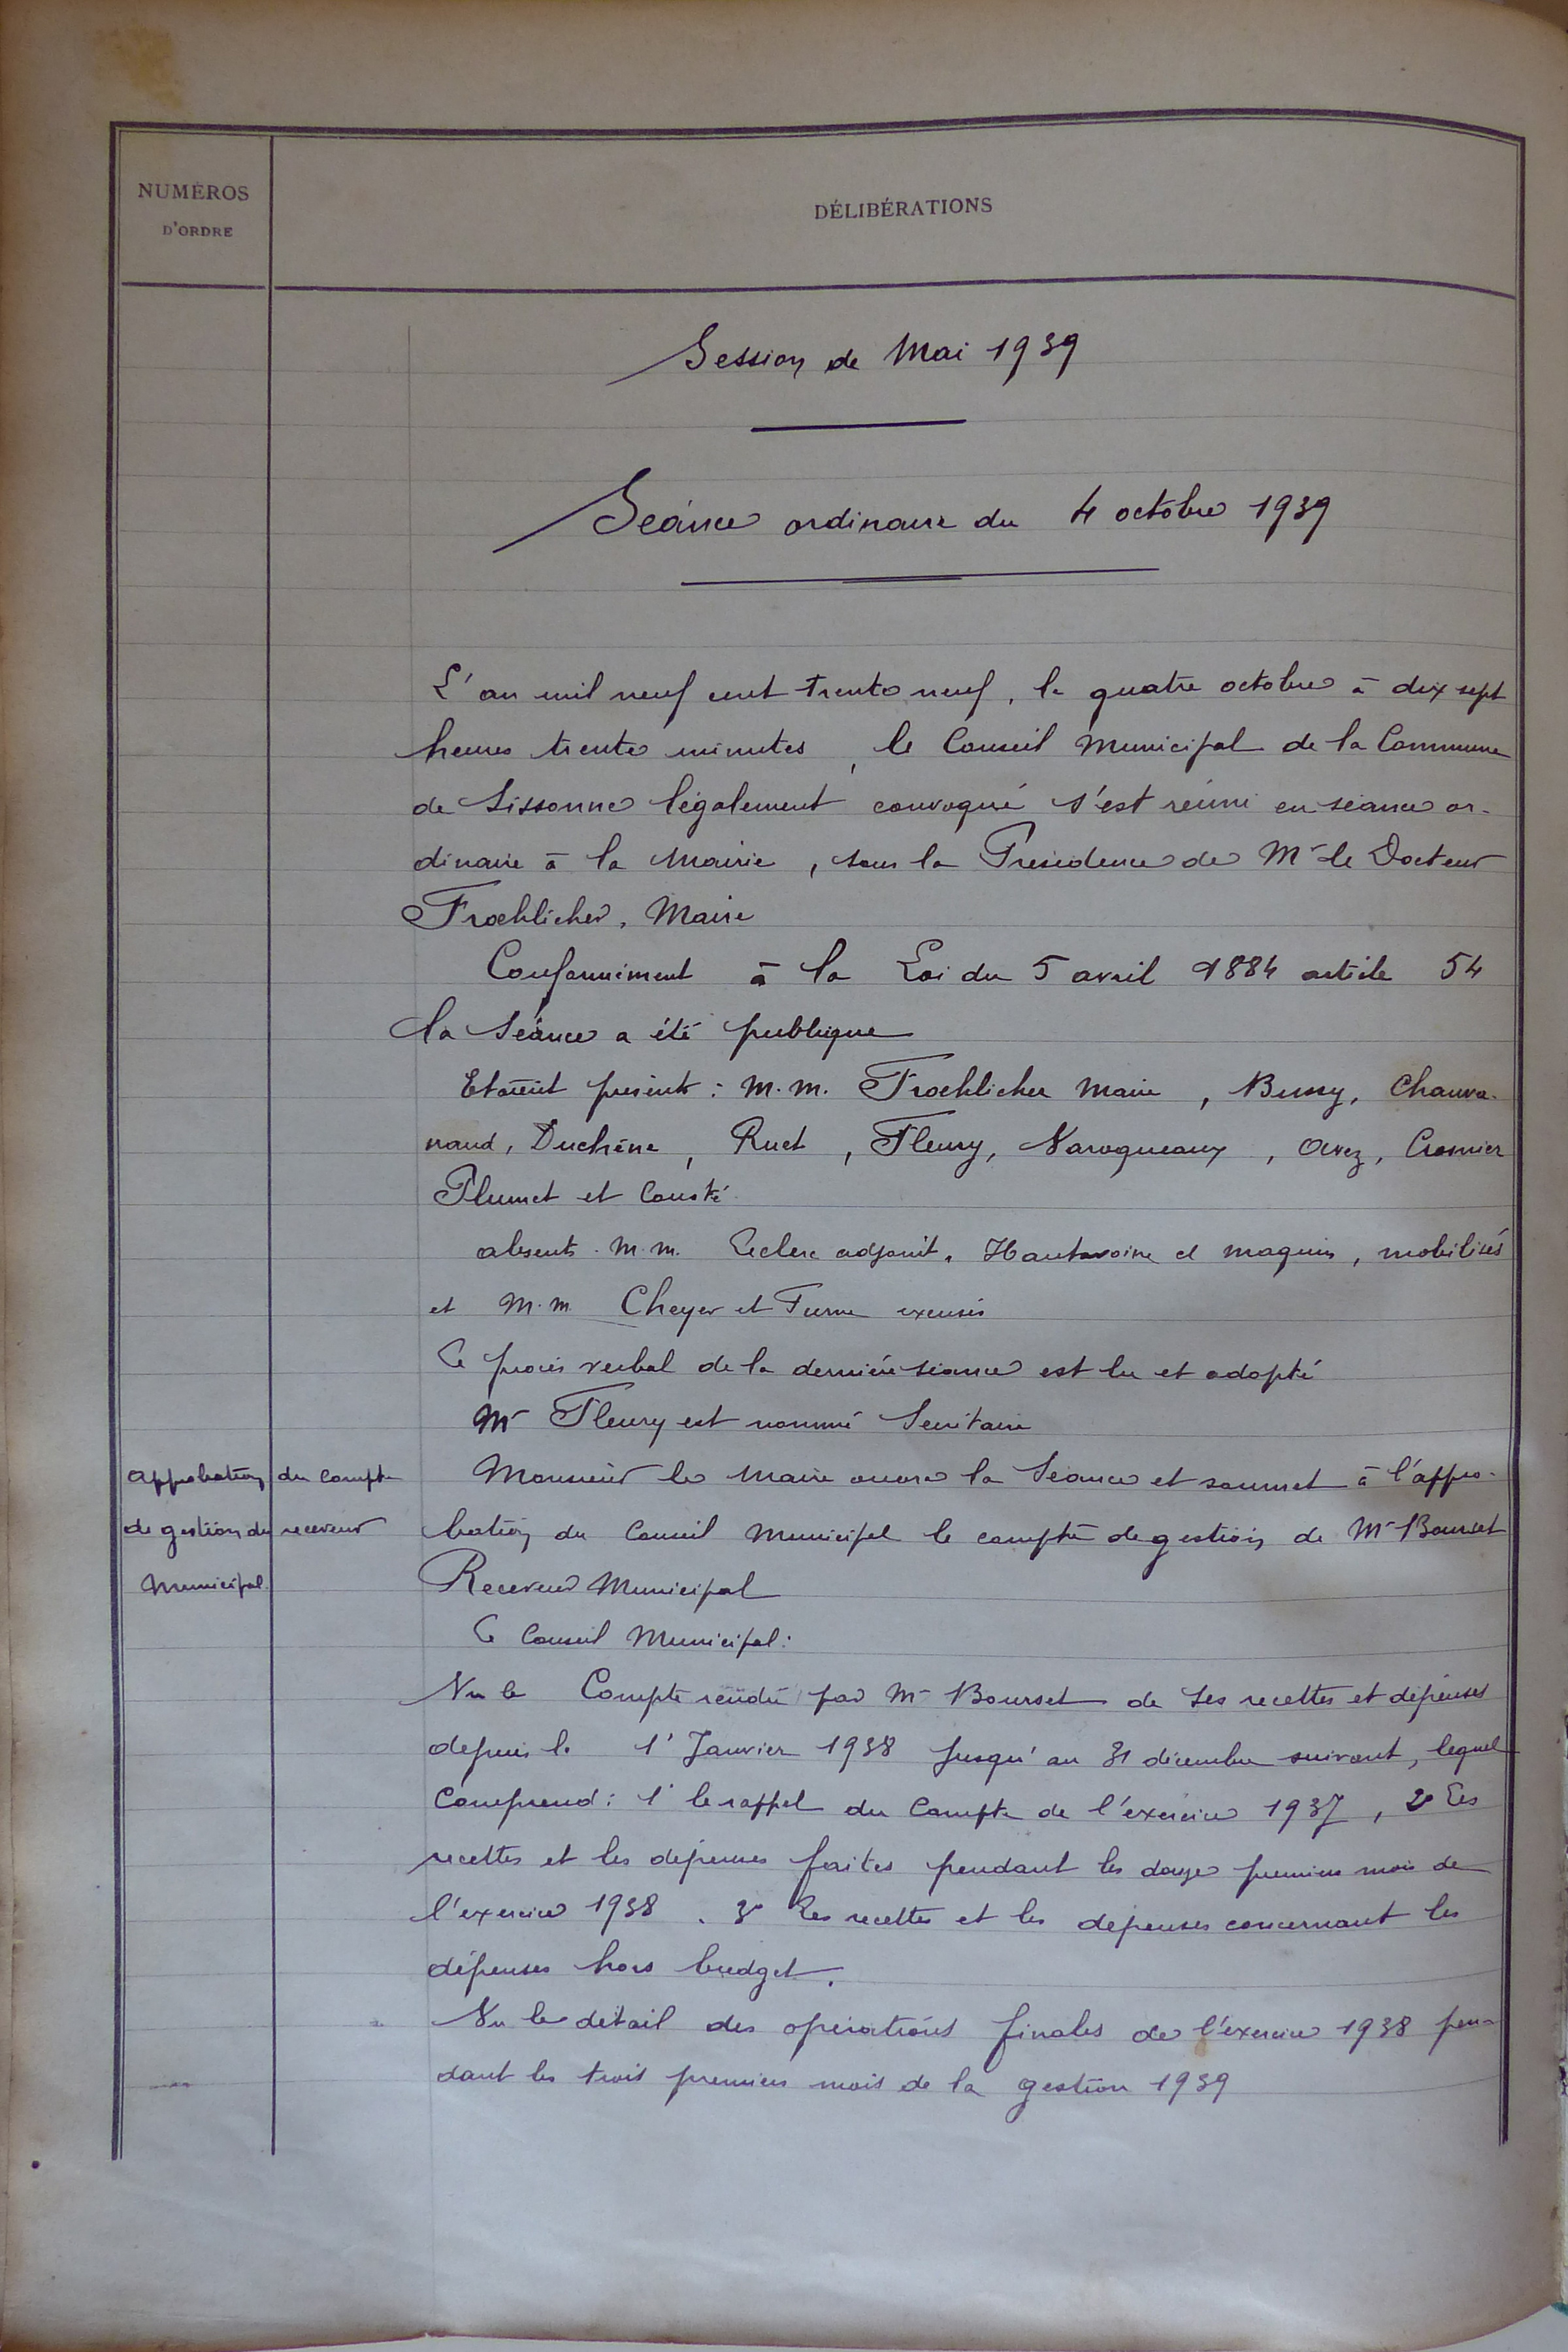 NUMÉROS
D'ORDRE
DÉLIBÉRATIONS
Session de Mai 1939
Séance ordinaire du 4 octobre 1939
L'an mil neuf cent trente neuf, le quatre octobre à dix sept
heures trente minutes, le Conseil Municipal de la Commune
de Sissonne légalement convoqué s'est réuni en séance or-
dinaire à la Mairie, sous la Présidence de Mr le Docteur
Froehlicher, Maire
Conformément à la Loi du 5 avril 1884 article 54
la Séance a été publique
Etaient présents : M.M. Froehlicher Maire, Bussy, Chauva-
naud, Duchêne, Ruet, Fleury, Varoqueaux, Avez, Cromier
Plumet et Cousté
absents . M.M. Leclerc adjoint, Hautavoine et Maquin, mobilisés
et M.M Cheyer et Turne excusés
Le procès verbal de la dernière séance est lu et adopté
Mr Fleury est nommé Secrétaire
Approbation du compte
de gestion du receveur
Municipal.
Monsieur le Maire ouvre la Séance et soumet à l'appro-
bation du Conseil Municipal le compte de gestion de Mr Bourset
Receveur Municipal
Le Conseil Municipal :
Vu le Compte rendu par Mr Bourset de ses recettes et dépenses
depuis le 1' Janvier 1938 jusqu'au 31 décembre suivant, lequel
comprend : 1° le rappel du Compte de l'exercice 1937, 2° Les
recettes et les dépenses faites pendant les douze premiers mois de
l'exercice 1938. 3° Les recettes et les dépenses concernant les
dépenses hors budget.
Vu le détail des opérations finales de l'exercice 1938 pen-
dant les trois premiers mois de la gestion 1939